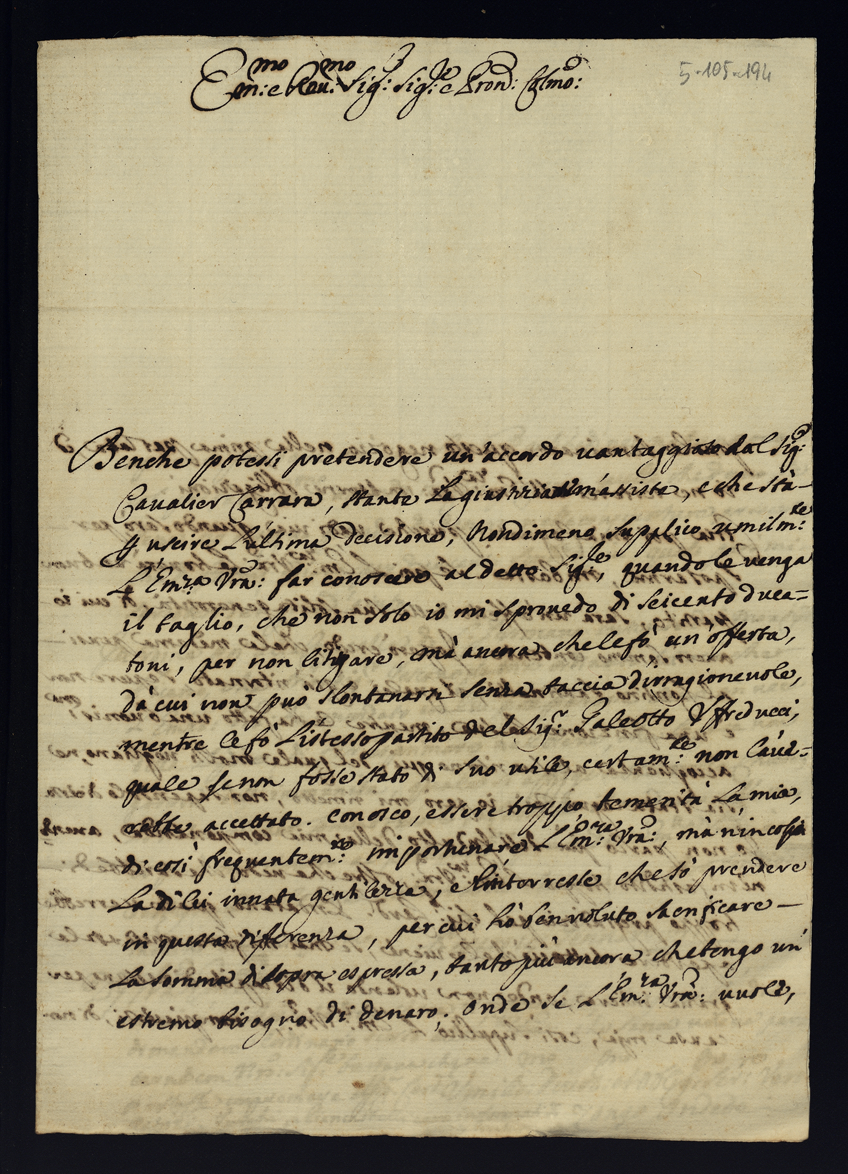 Em:mo e Reu:mo Sig: Sig:re e Pron: Colmo:
5-105-194
Benche potessi pretendere un'accordo uantaggioso dal Sig:
Cavalier Carrara, stante La giustizia m'assista, e che stà-
uscire L'ultima decisione, Nondimeno supplico umilm:te
L'Em:za Vra: far conoscere al detto Sig:re quando le uenga
il taglio, che non solo io mi sprouedo di seicento duca=
toni, per non litigare, mà ancora che le fò un'offerta,
dà cui non può slontanarsi senza taccia d'irragioneuole,
mentre le fò L'istesso partito del Sig:r Paleotto Vffreducci,
quale se non fosse stato di suo utile, certam:te non L'aue=
rebbe accettato. conosco, essere troppo temerità La mia,
di così frequentem:te importunare L'Em:za Vra:, mà n'incolpi
La di lei innata gentilezza, e l'intorresse che sò prendere
in questa diferenza, per cui hò ben uoluto sacrificare -
La somma di sopra espressa, tanto più ancora che tengo un'
estremo bisogno di denaro. Onde se L'Em:za Vra: uuole,